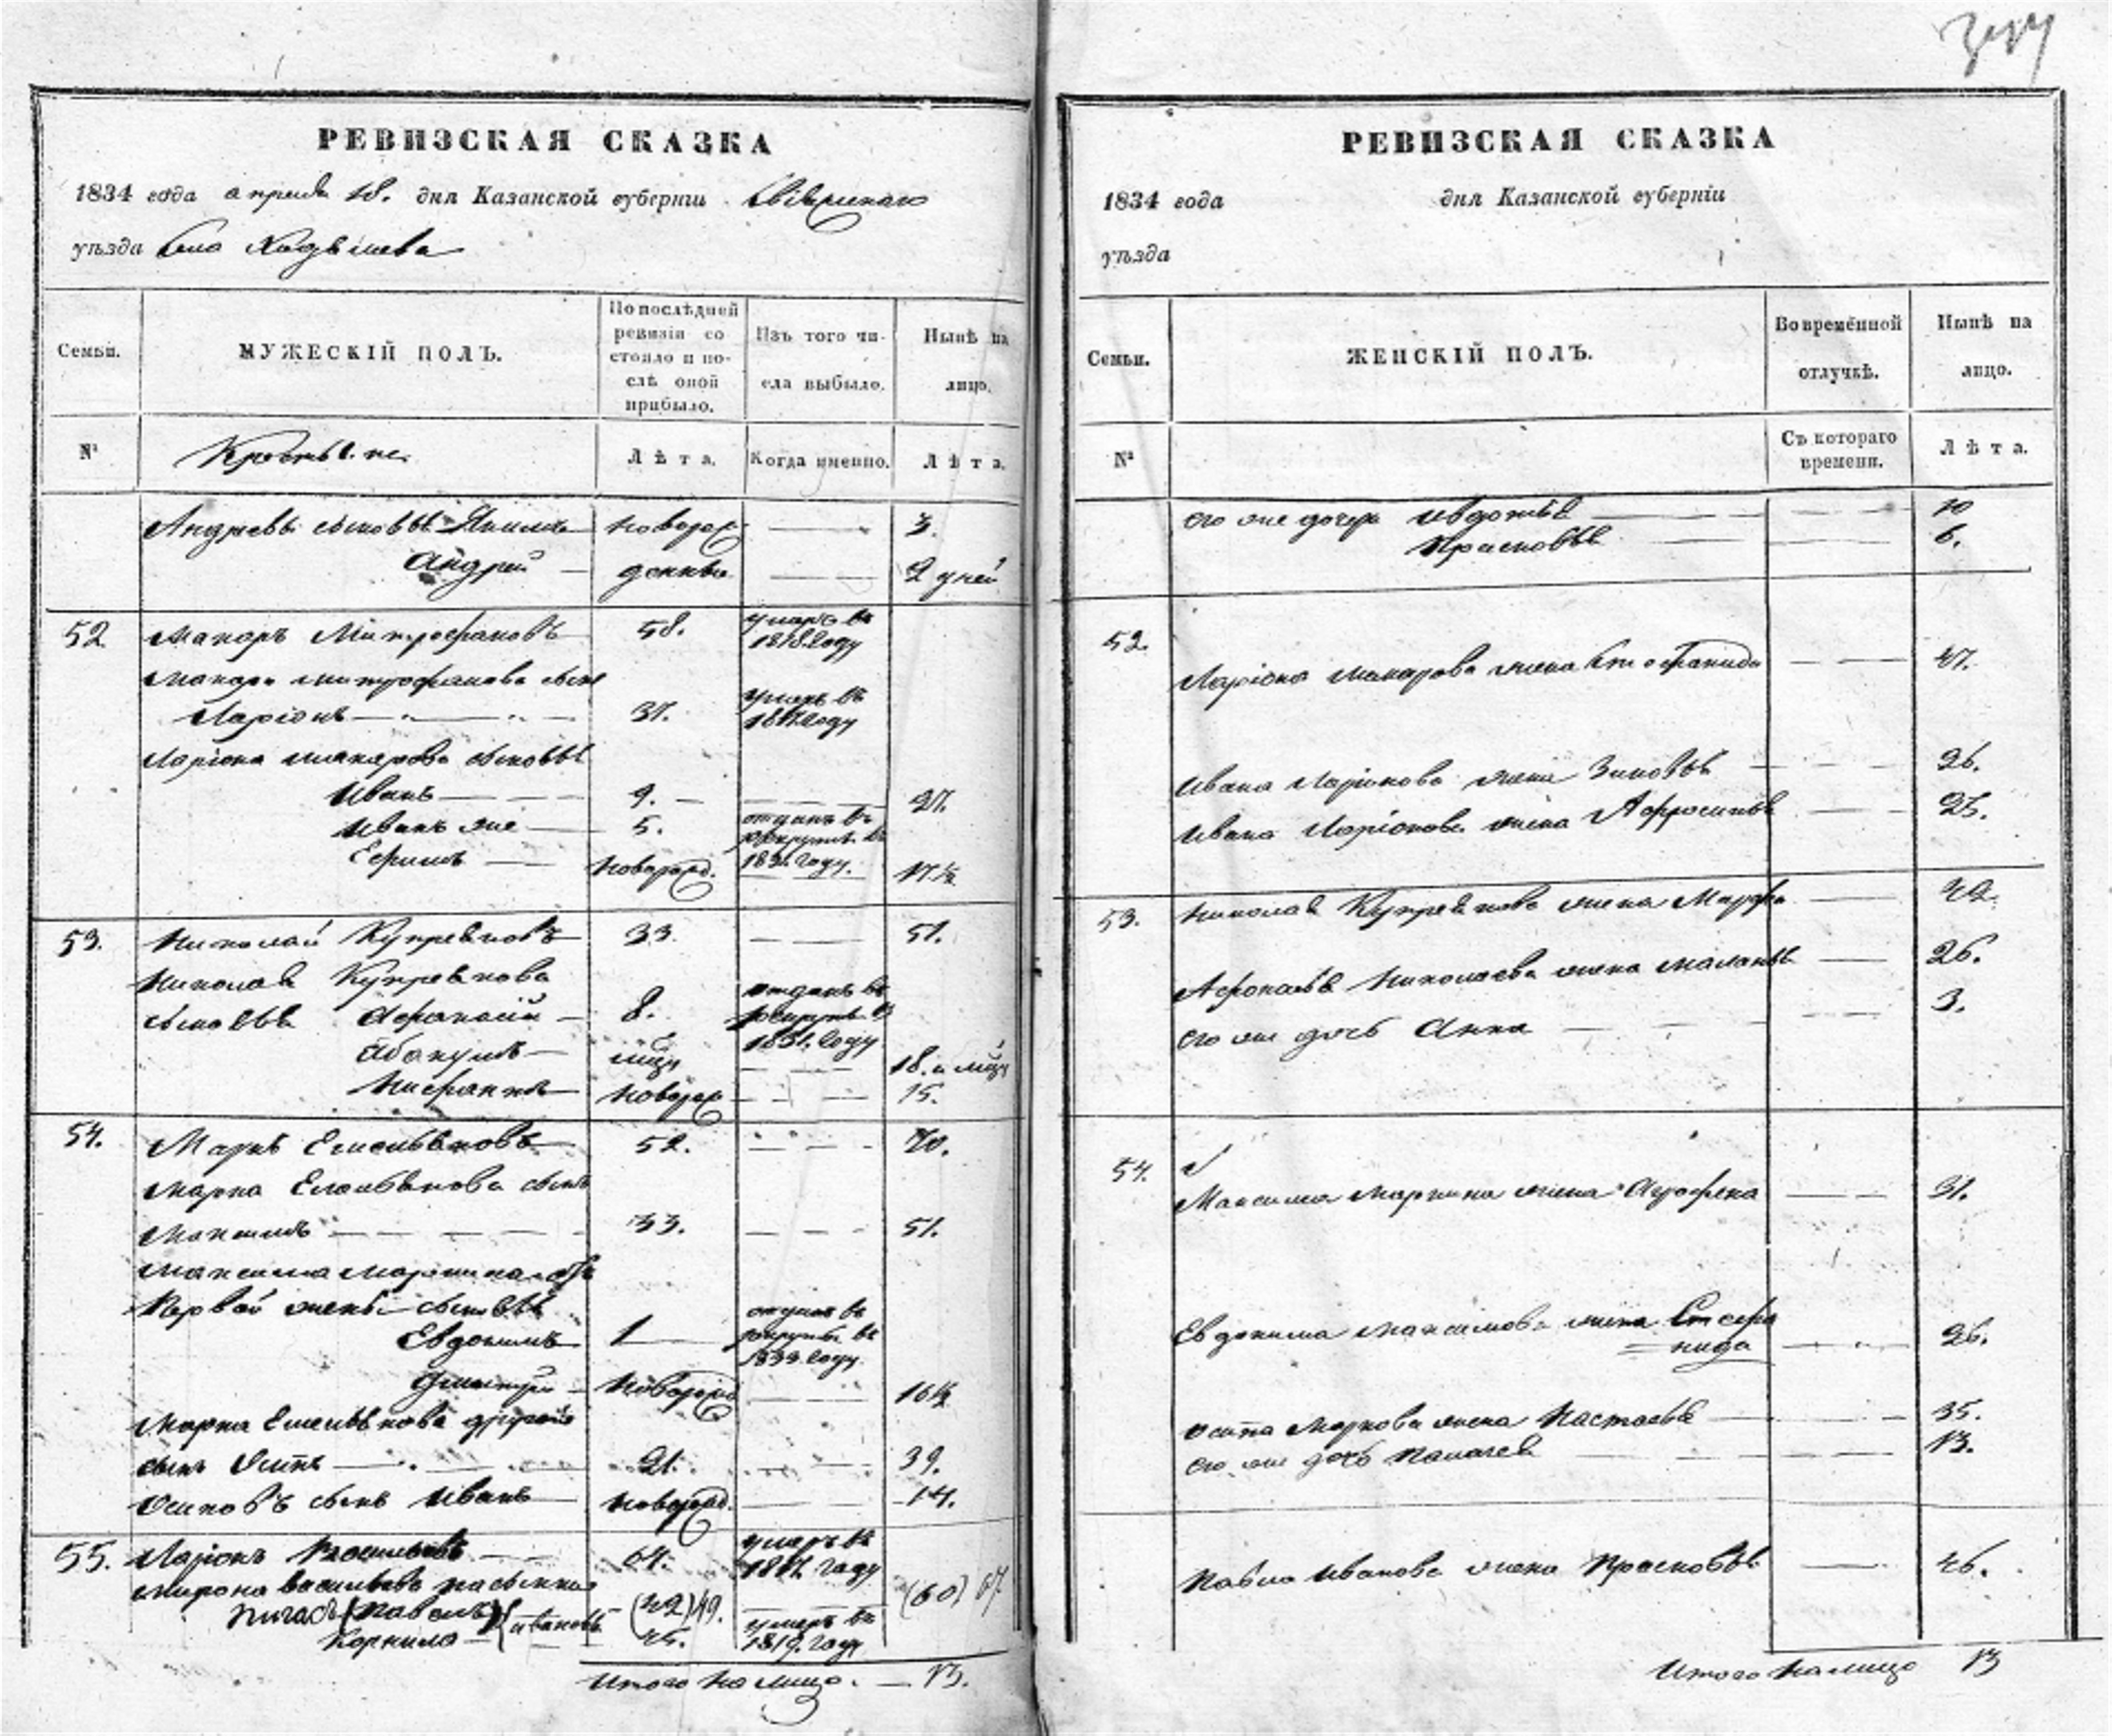 РЕВИЗСКАЯ СКАЗКА
1834 года апреля 18. дня Казанской губернiи Свiяжскаго
уѣзда Села
Семьи.
МУЖЕСКIЙ ПОЛЪ.
По послѣдней
ревизiи со-
стояло и по-
слѣ оной
прибыло.
Изъ того чи-
сла выбыло.
Нынѣ на
лицо.
№
Лѣта.
Когда именно.
Лѣта.
Андреевы сыновья новорож 3.
Андрей — денные 2 дней
52 Макаръ Митрофановъ 58. умеръ въ
1818 году
Макара Митрофанова сынъ
Ларiонъ 37. умеръ въ
году
Ларiона Макарова сыновья
Иванъ 9. 27.
Иванъ же 5. отданъ въ
рекруты въ
году.
Ефимъ новорожд. 17 ½
53. Николай Купреяновъ 33. 51.
Николая Купреянова
сыновья Афанасiй 8. отданъ въ
рекруты въ
1831. году
Абакумъ 18. и
новорож 15.
54. Марка Емельяновъ 52. 70.
Марка Емельянова сынъ
Максимъ 33. 51.
Максима Маркина отъ
Первой жены сыновья
Евдокимъ 1 отданъ въ
рекруты въ
году
Дмитрiй новорожд 16 ½
Марка Емельянова другой
сынъ Осипъ 21. 39.
Осиповъ сынъ Иванъ новорожд. 14.
55. Ларiонъ Васильевъ 64. умеръ въ
году
Мирона Васильева пасынки
(Павелъ) Ивановы (42) 49. (60) 67
Корнило 45. умеръ въ
1819. году
Итого на лицо. 13.
РЕВИЗСКАЯ СКАЗКА
1834 года дня Казанской губернiи
уѣзда
Семьи.
ЖЕНСКIЙ ПОЛЪ.
Во временной
отлучкѣ.
Нынѣ на
лицо.
№
Съ котораго
времени.
Лѣта.
его же дочери Авдотья 10
Прасковья 6.
52. Ларiона Макарова жена 47.
Ивана Ларiонова жена Зиновья 26.
Ивана Ларiонова жена Афросинья 25.
53. Николая Купреянова жена Марфа
Афонасья Николаева жена Маланья 26.
его же дочь Анна 3.
54.
Максима Маркина жена Агрофена 31.
Евдокима Максимова жена Стефа
нида 26.
Осипа Маркова жена Настасья 35.
его же дочь Палагея 13.
Павла Иванова жена Прасковья 46.
Итого на лицо 13